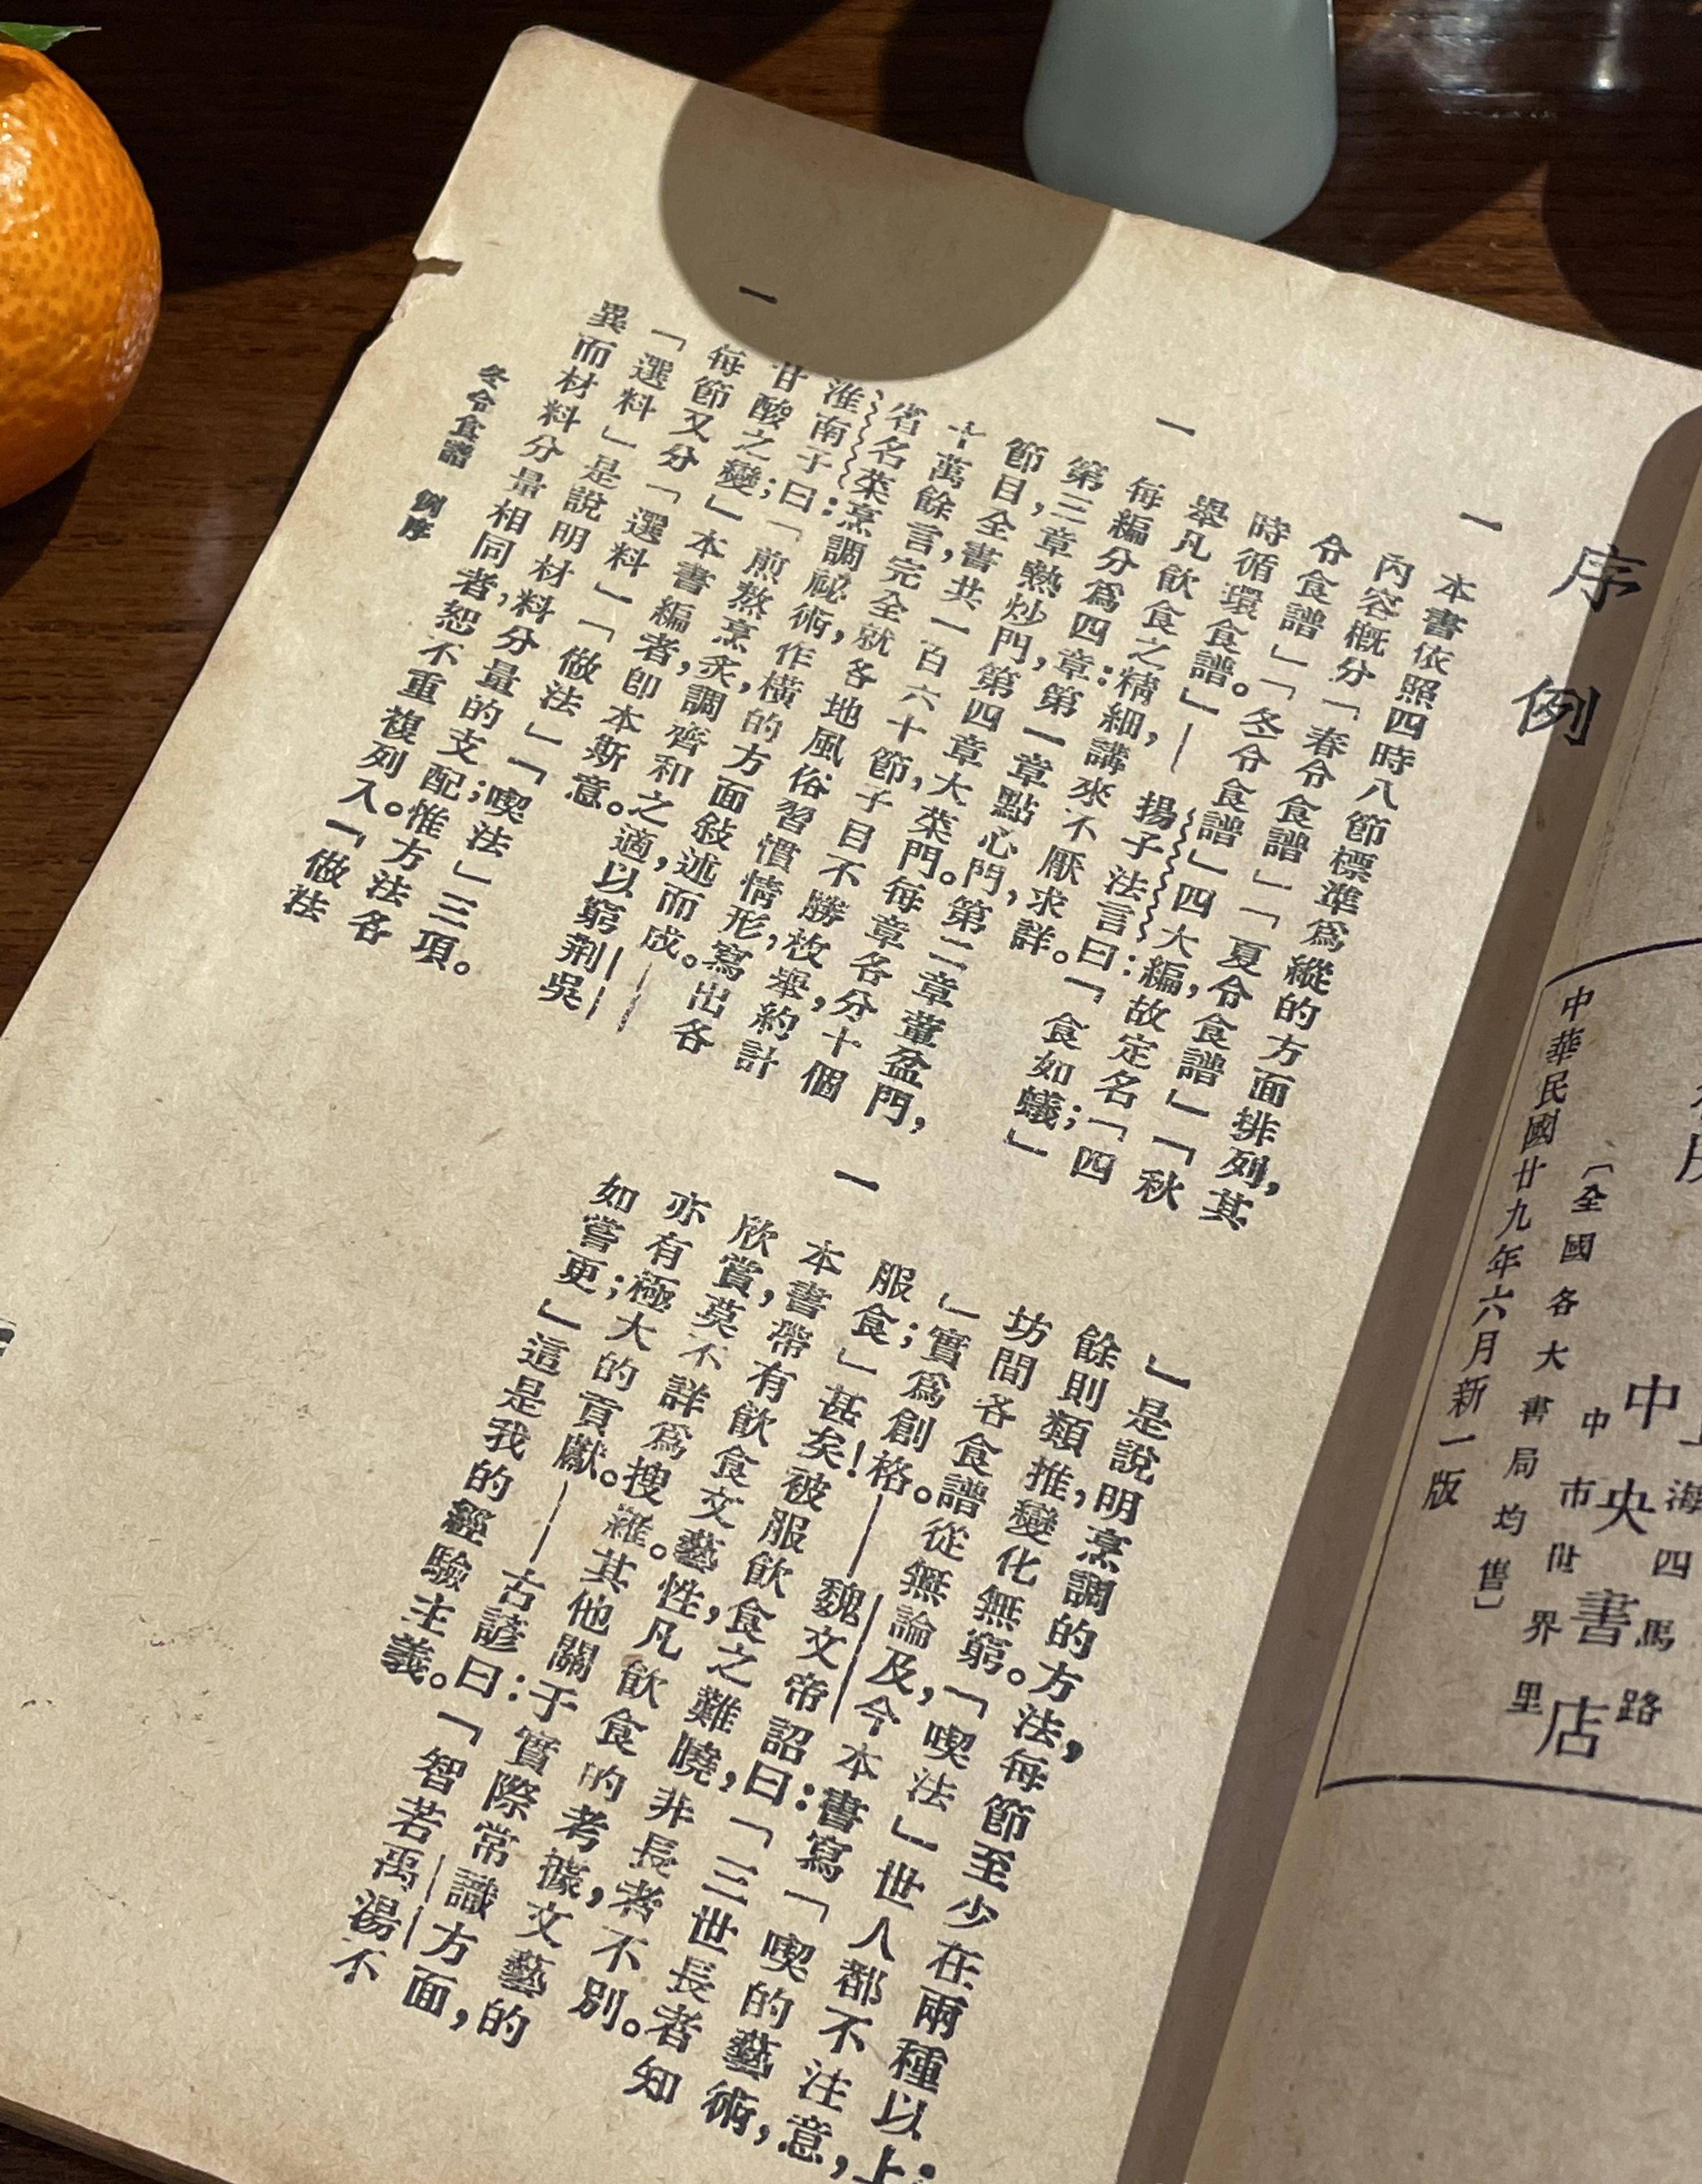 海四馬路
中央書店
中市世界里
〔全國各大書局均售〕
中華民國廿九年六月新一版
序例
一 本書依照四時八節標準爲縱的方面排列,其
內容概分「春令食譜」「夏令食譜」「秋
令食譜」「冬令食譜」四大編,故定名「四
時循環食譜。」——揚子法言曰:「食如蟻;」
舉凡飲食之精細,講來不厭求詳。
一 每編分爲四章:第一章點心門,第二章葷盆門,
第三章熱炒門,第四章大菜門。每章各分十個
節目,全書共一百六十節,子目不勝枚舉,約計
十萬餘言,完全就各地風俗習慣情形,寫出各
省名菜烹調祕術,作橫的方面敍述而成。——
淮南子曰:「煎熬烹炙,調齊和之適,以窮荆吳
甘酸之變;」本書編者,卽本斯意。
一 每節又分「選料」「做法」「喫法」三項。
「選料」是說明材料分量的支配;惟方法各
異而材料分量相同者,恕不重複列入。「做法
」是說明烹調的方法,每節至少在兩種以上;
餘則類推,變化無窮。「喫法」世人都不注意,
坊間各食譜從無論及,今本書寫「喫的藝術,
」實爲創格。——魏文帝詔曰:「三世長者知
服食;」甚矣!被服飲食之難曉,非長者不別。
一 本書帶有飲食文藝性,凡飲食的考據,文藝的
欣賞,莫不詳爲搜羅。其他關于實際常識方面,
亦有極大的貢獻。——古諺曰:「智若禹湯不
如嘗更;」這是我的經驗主義。
冬令食譜 例序